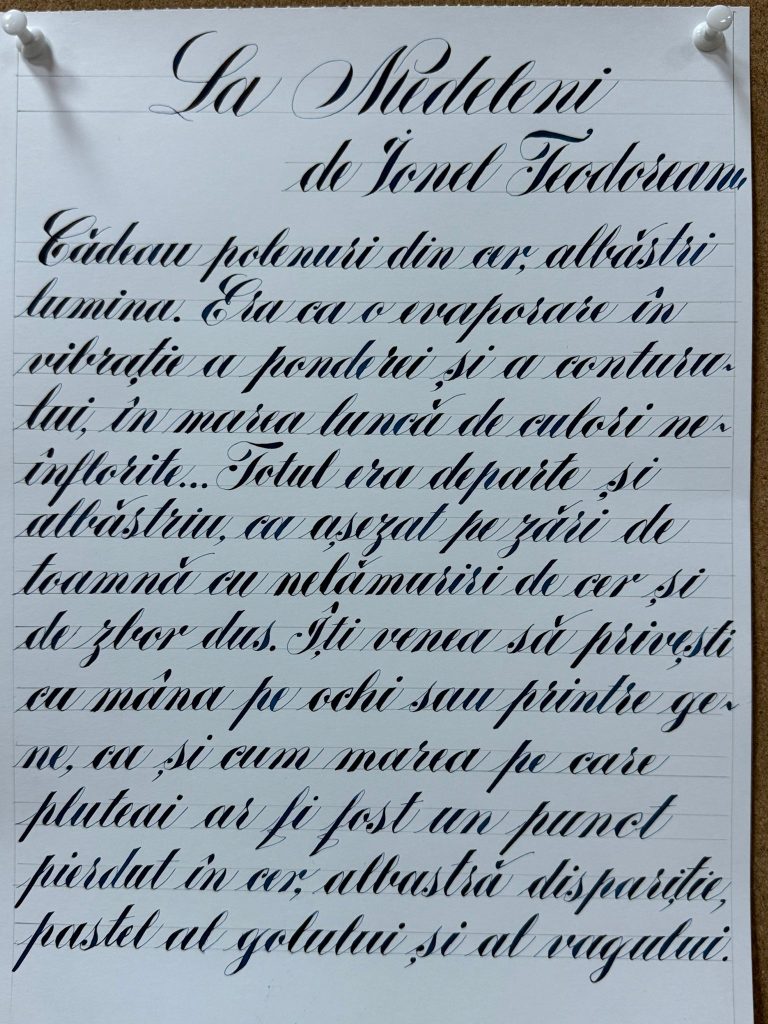 La Medeleni
de Ionel Teodoreanu
Cădeau polenuri din cer, albăstri
lumina. Era ca o evaporare în
vibrație a ponderei și a conturu~
lui, în marea luncă de culori ne~
înflorite... Totul era departe și
albăstriu, ca așezat pe zări de
toamnă cu nelămuriri de cer și
de zbor dus. Îți venea să privești
cu mâna pe ochi sau printre ge~
ne, ca și cum marea pe care
pluteai ar fi fost un punct
pierdut în cer, albastră dispariție,
pastel al golului și al vagului.